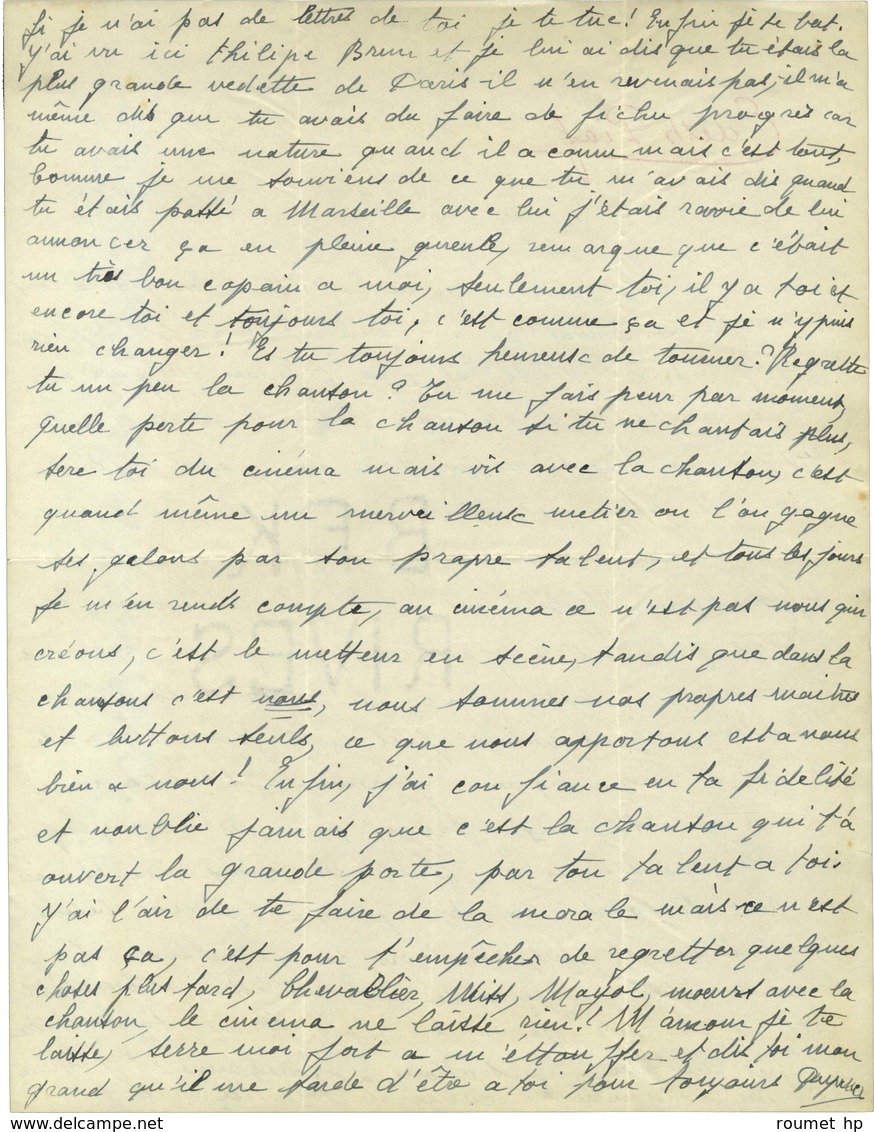 Si je n'ai pas de lettres de toi je te tue! Enfin je te bat.
J'ai vu ici Philipe Brun et je lui ai dis que tu étais la
plus grande vedette de Paris il n'en revenais pas, il m'a
même dis que tu avais du faire de fichu progrès car
tu avais une nature quand il a connu mais c'est tout,
Comme je me souviens de ce que tu m'avais dis quand
tu étais passé a Marseille avec lui j'étais ravie de lui
annoncer ça en pleine gueule, remarque que c'était
un très bon copain a moi, seulement toi, il y a toi et
encore toi et toujours toi, c'est comme ça et je n'y puis
rien changer! Es tu toujours heureuse de tourner? Regrette
tu un peu la chanson? Tu me fais peur par moment,
quelle perte pour la chanson si tu ne chantais plus,
sere toi du cinéma mais vis avec la chanson, c'est
quand même un merveilleuse metier ou l'on gagne
ses galons par son propre talent, et tous les jours
Je m'en rends compte, au cinéma ce n'est pas nous qui
créons, c'est le metteur en scène, tandis que dans la
chansons c'est nous, nous sommes nos propres maitres
et luttons seuls, ce que nous apportons est a nous
bien a nous! Enfin, j'ai confiance en ta fidelité
et n'oublie jamais que c'est la chanson qui t'a
ouvert la grande porte, par ton talent a toi.
J'ai l'air de te faire de la morale mais ce n'est
pas ça, c'est pour t'empêcher de regretter quelques
choses plus tard, Chevallier, Miss, Mayol, meurs avec la
chanson, le cinema ne laisse rien! M'amour je te
laisse, serre moi fort a m'éttouffer et dis toi mon
grand qu'il me tarde d'être a toi pour toujours
roumet hp